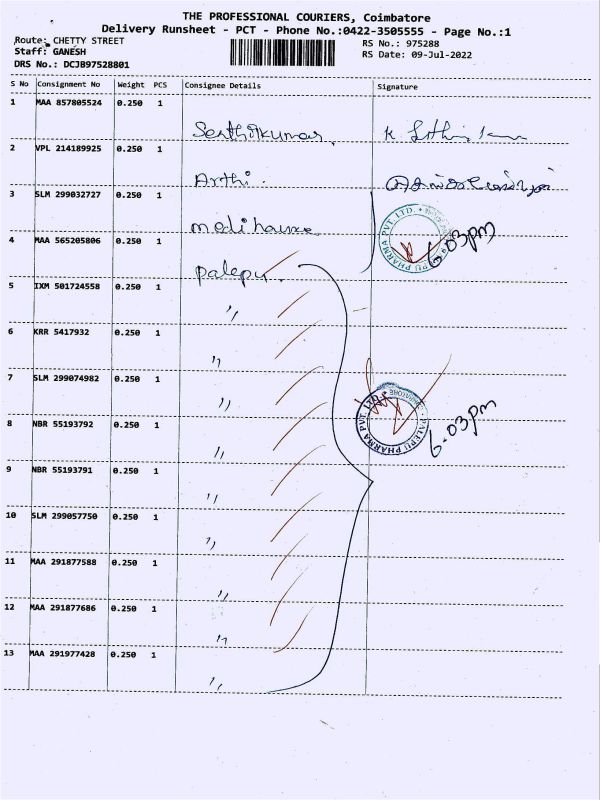 THE PROFESSIONAL COURIERS, Coimbatore
Delivery Runsheet - PCT - Phone No.:0422-3505555 - Page No.:1
Route: CHETTY STREET
RS No.: 975288
Staff: GANESH
RS Date: 09-Jul-2022
DRS No.: DCJB97528801
S No Consignment No Weight PCS Consignee Details Signature
1 MAA 857805524 0.250 1
Senthilkumar
2 VPL 214189925 0.250 1
Arthi.
3 SLM 299032727 0.250 1
medi house
PVT. LTD.
6.03pm
4 MAA 565205806 0.250 1
palepu
5 IXM 501724558 0.250 1
"
6 KRR 5417932 0.250 1
"
7 SLM 299074982 0.250 1
"
PALEPU PHARMA PVT. LTD.
6.03pm
8 NBR 55193792 0.250 1
"
9 NBR 55193791 0.250 1
"
10 SLM 299057750 0.250 1
"
11 MAA 291877588 0.250 1
"
12 MAA 291877686 0.250 1
"
13 MAA 291977428 0.250 1
"